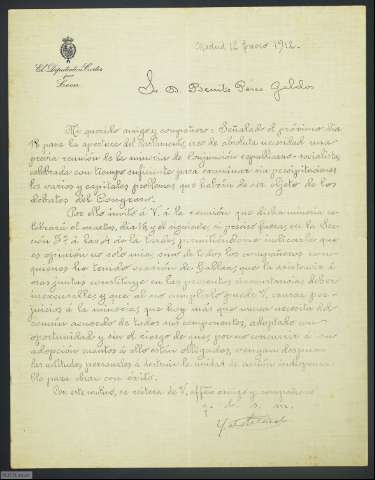 Madrid 12 Enero 1912.
El Diputado a Cortes
por
Sr. D. Benito Pérez Galdós
Mi querido amigo y compañero: Señalado el próximo día
18 para la apertura del Parlamento, creo de absoluta necesidad una
previa reunión de la minoría de Conjunción republicano-socialista,
celebrada con tiempo suficiente para examinar sin precipitaciones
los varios y capitales problemas que habrán de ser objeto de los
debates del Congreso.
Por ello invito á V. á la reunión que dicha minoría ce-
lebrará el martes, día 16 y el siguiente, si preciso fuera, en la Sec-
ción 5ª á las 4 de la tarde, permitiéndome indicarle que
es opinión no solo mía, sino de todos los compañeros con
quienes he tenido ocasión de hablar, que la asistencia á
esas juntas constituye en las presentes circunstancias deber
inexcusable y que al no cumplirlo puede V. causar per-
juicios á la minoría, que hoy más que nunca necesita del
común acuerdo de todos sus componentes, adoptado con
oportunidad y sin el riesgo de que, por no concurrir á su
adopción cuantos á ello están obligados, vengan después
actitudes personales á destruir la unidad de acción indispensa-
ble para obrar con éxito.
Con este motivo, se reitera de V. affmo amigo y compañero
q. b. s. m.